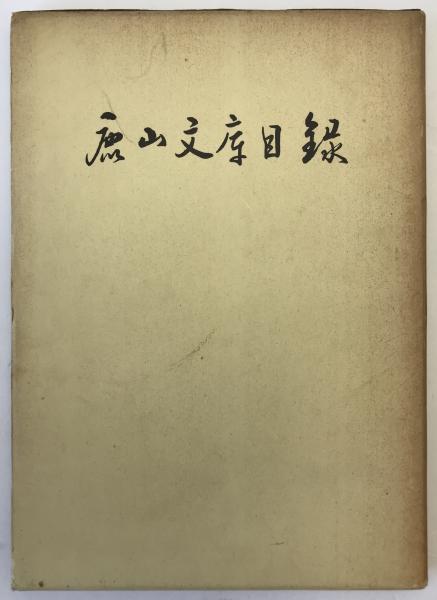 鹿山文庫目録